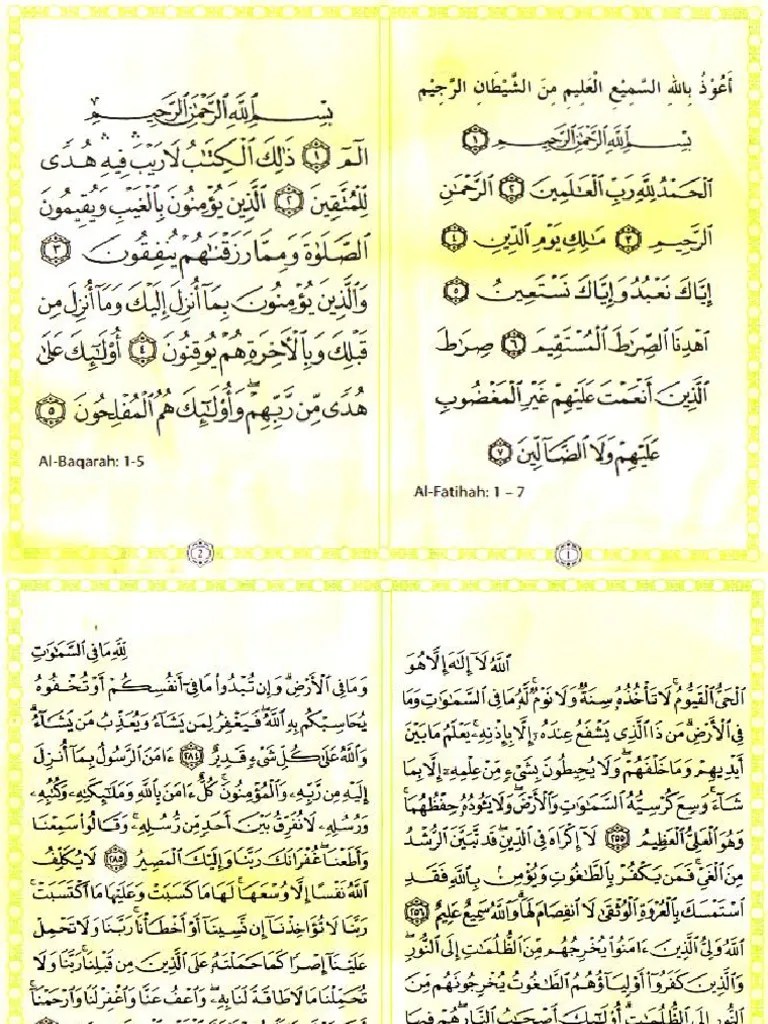 أَعُوْذُ بِاللهِ السَّمِيْعِ الْعَلِيْمِ مِنَ الشَّيْطَانِ الرَّجِيْمِ
بِسْمِ ٱللَّهِ ٱلرَّحْمَٰنِ ٱلرَّحِيمِ ١
ٱلْحَمْدُ لِلَّهِ رَبِّ ٱلْعَٰلَمِينَ ٢ ٱلرَّحْمَٰنِ
ٱلرَّحِيمِ ٣ مَٰلِكِ يَوْمِ ٱلدِّينِ ٤
إِيَّاكَ نَعْبُدُ وَإِيَّاكَ نَسْتَعِينُ ٥
ٱهْدِنَا ٱلصِّرَٰطَ ٱلْمُسْتَقِيمَ ٦ صِرَٰطَ
ٱلَّذِينَ أَنْعَمْتَ عَلَيْهِمْ غَيْرِ ٱلْمَغْضُوبِ
عَلَيْهِمْ وَلَا ٱلضَّآلِّينَ ٧
Al-Fatihah: 1 – 7
1
بِسْمِ ٱللَّهِ ٱلرَّحْمَٰنِ ٱلرَّحِيمِ
الٓمٓ ١ ذَٰلِكَ ٱلْكِتَٰبُ لَا رَيْبَ ۛ فِيهِ ۛ هُدًى
لِّلْمُتَّقِينَ ٢ ٱلَّذِينَ يُؤْمِنُونَ بِٱلْغَيْبِ وَيُقِيمُونَ
ٱلصَّلَوٰةَ وَمِمَّا رَزَقْنَٰهُمْ يُنفِقُونَ ٣
وَٱلَّذِينَ يُؤْمِنُونَ بِمَآ أُنزِلَ إِلَيْكَ وَمَآ أُنزِلَ مِن
قَبْلِكَ وَبِٱلْءَاخِرَةِ هُمْ يُوقِنُونَ ٤ أُو۟لَٰٓئِكَ عَلَىٰ
هُدًى مِّن رَّبِّهِمْ ۖ وَأُو۟لَٰٓئِكَ هُمُ ٱلْمُفْلِحُونَ ٥
Al-Baqarah: 1-5
2
ٱللَّهُ لَآ إِلَٰهَ إِلَّا هُوَ
ٱلْحَىُّ ٱلْقَيُّومُ ۚ لَا تَأْخُذُهُۥ سِنَةٌ وَلَا نَوْمٌ ۚ لَّهُۥ مَا فِى ٱلسَّمَٰوَٰتِ وَمَا
فِى ٱلْأَرْضِ ۗ مَن ذَا ٱلَّذِى يَشْفَعُ عِندَهُۥٓ إِلَّا بِإِذْنِهِۦ ۚ يَعْلَمُ مَا بَيْنَ
أَيْدِيهِمْ وَمَا خَلْفَهُمْ ۖ وَلَا يُحِيطُونَ بِشَىْءٍ مِّنْ عِلْمِهِۦٓ إِلَّا بِمَا
شَآءَ ۚ وَسِعَ كُرْسِيُّهُ ٱلسَّمَٰوَٰتِ وَٱلْأَرْضَ ۖ وَلَا يَـُٔودُهُۥ حِفْظُهُمَا ۚ
وَهُوَ ٱلْعَلِىُّ ٱلْعَظِيمُ ٢٥٥ لَآ إِكْرَاهَ فِى ٱلدِّينِ ۖ قَد تَّبَيَّنَ ٱلرُّشْدُ
مِنَ ٱلْغَىِّ ۚ فَمَن يَكْفُرْ بِٱلطَّٰغُوتِ وَيُؤْمِنۢ بِٱللَّهِ فَقَدِ
ٱسْتَمْسَكَ بِٱلْعُرْوَةِ ٱلْوُثْقَىٰ لَا ٱنفِصَامَ لَهَا ۗ وَٱللَّهُ سَمِيعٌ عَلِيمٌ ٢٥٦
ٱللَّهُ وَلِىُّ ٱلَّذِينَ ءَامَنُوا۟ يُخْرِجُهُم مِّنَ ٱلظُّلُمَٰتِ إِلَى ٱلنُّورِ ۖ
وَٱلَّذِينَ كَفَرُوٓا۟ أَوْلِيَآؤُهُمُ ٱلطَّٰغُوتُ يُخْرِجُونَهُم مِّنَ
ٱلنُّورِ إِلَى ٱلظُّلُمَٰتِ ۗ أُو۟لَٰٓئِكَ أَصْحَٰبُ ٱلنَّارِ ۖ هُمْ فِيهَا
لِّلَّهِ مَا فِى ٱلسَّمَٰوَٰتِ
وَمَا فِى ٱلْأَرْضِ ۗ وَإِن تُبْدُوا۟ مَا فِىٓ أَنفُسِكُمْ أَوْ تُخْفُوهُ
يُحَاسِبْكُم بِهِ ٱللَّهُ ۖ فَيَغْفِرُ لِمَن يَشَآءُ وَيُعَذِّبُ مَن يَشَآءُ ۗ
وَٱللَّهُ عَلَىٰ كُلِّ شَىْءٍ قَدِيرٌ ٢٨٤ ءَامَنَ ٱلرَّسُولُ بِمَآ أُنزِلَ
إِلَيْهِ مِن رَّبِّهِۦ وَٱلْمُؤْمِنُونَ ۚ كُلٌّ ءَامَنَ بِٱللَّهِ وَمَلَٰٓئِكَتِهِۦ وَكُتُبِهِۦ
وَرُسُلِهِۦ لَا نُفَرِّقُ بَيْنَ أَحَدٍ مِّن رُّسُلِهِۦ ۚ وَقَالُوا۟ سَمِعْنَا
وَأَطَعْنَا ۖ غُفْرَانَكَ رَبَّنَا وَإِلَيْكَ ٱلْمَصِيرُ ٢٨٥ لَا يُكَلِّفُ
ٱللَّهُ نَفْسًا إِلَّا وُسْعَهَا ۚ لَهَا مَا كَسَبَتْ وَعَلَيْهَا مَا ٱكْتَسَبَتْ ۗ
رَبَّنَا لَا تُؤَاخِذْنَآ إِن نَّسِينَآ أَوْ أَخْطَأْنَا ۚ رَبَّنَا وَلَا تَحْمِلْ
عَلَيْنَآ إِصْرًا كَمَا حَمَلْتَهُۥ عَلَى ٱلَّذِينَ مِن قَبْلِنَا ۚ رَبَّنَا وَلَا
تُحَمِّلْنَا مَا لَا طَاقَةَ لَنَا بِهِۦ ۖ وَٱعْفُ عَنَّا وَٱغْفِرْ لَنَا وَٱرْحَمْنَآ ۚ